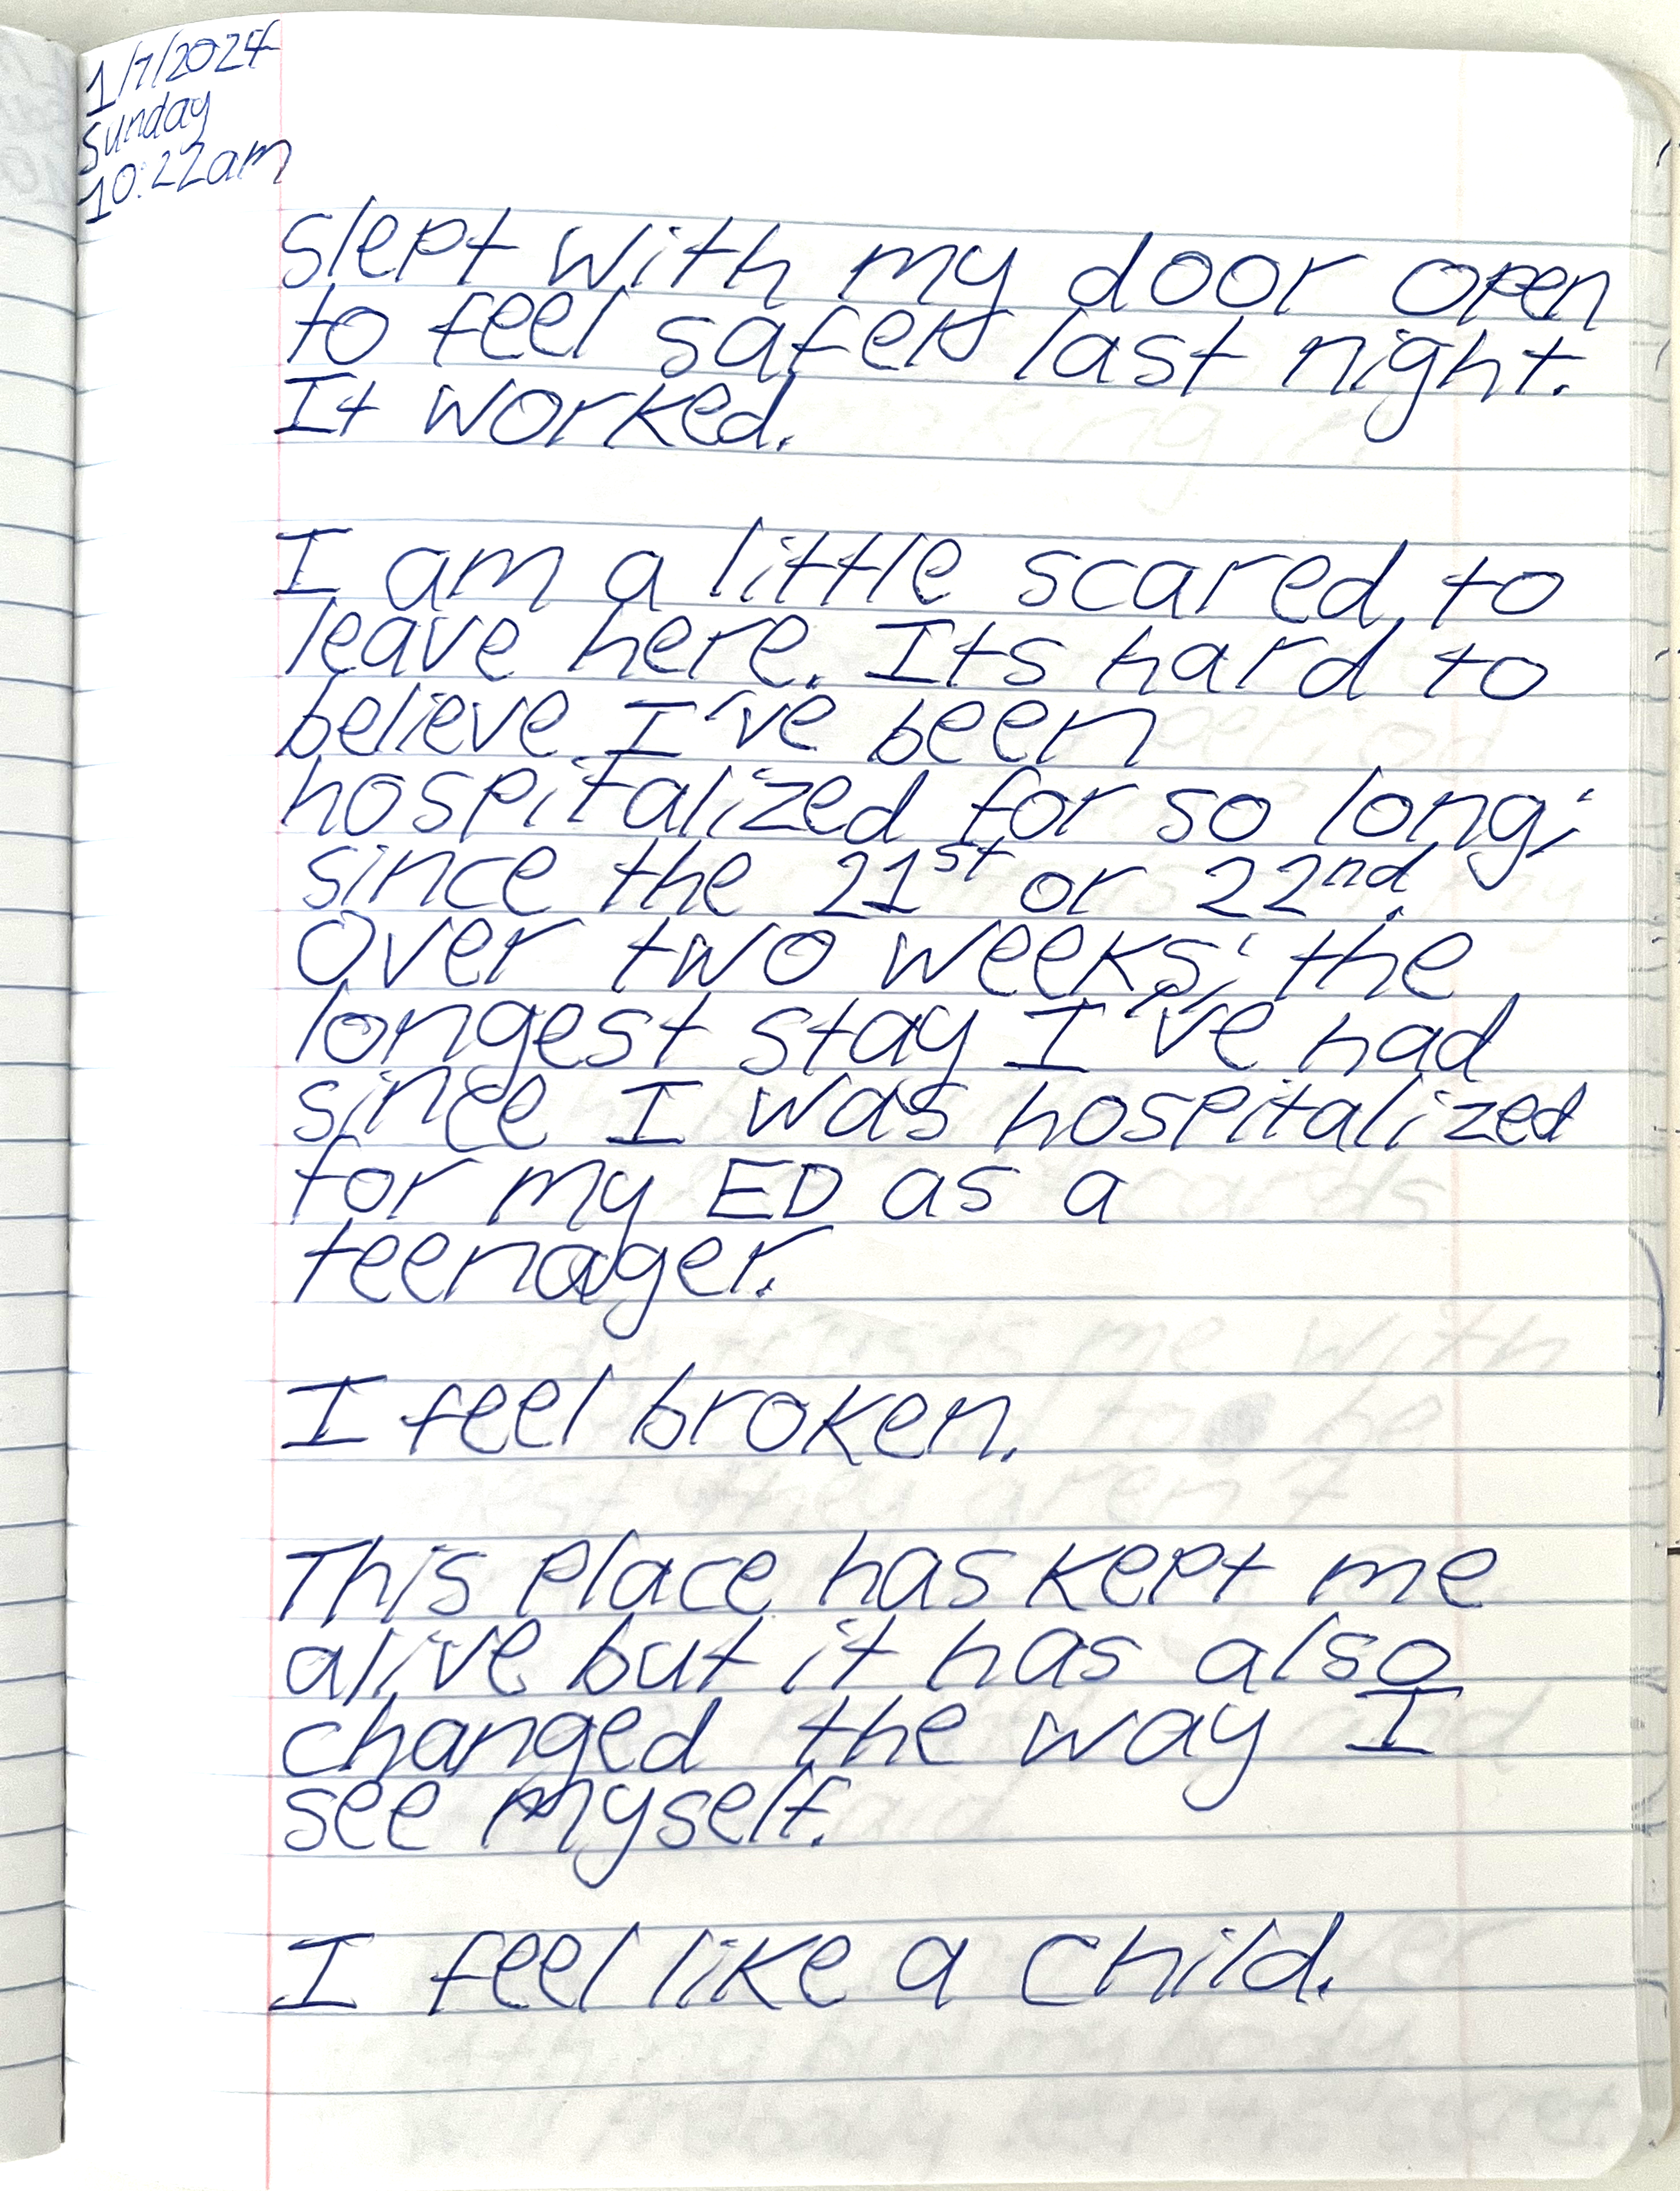 1/7/2024
Sunday
10:22am
slept with my door open
to feel safer last night.
It worked.
I am a little scared to
leave here. Its hard to
believe I've been
hospitalized for so long;
since the 21st or 22nd.
Over two weeks; the
longest stay I've had
since I was hospitalized
for my ED as a
teenager.
I feel broken.
This place has kept me
alive but it has also
changed the way I
see myself.
I feel like a child.